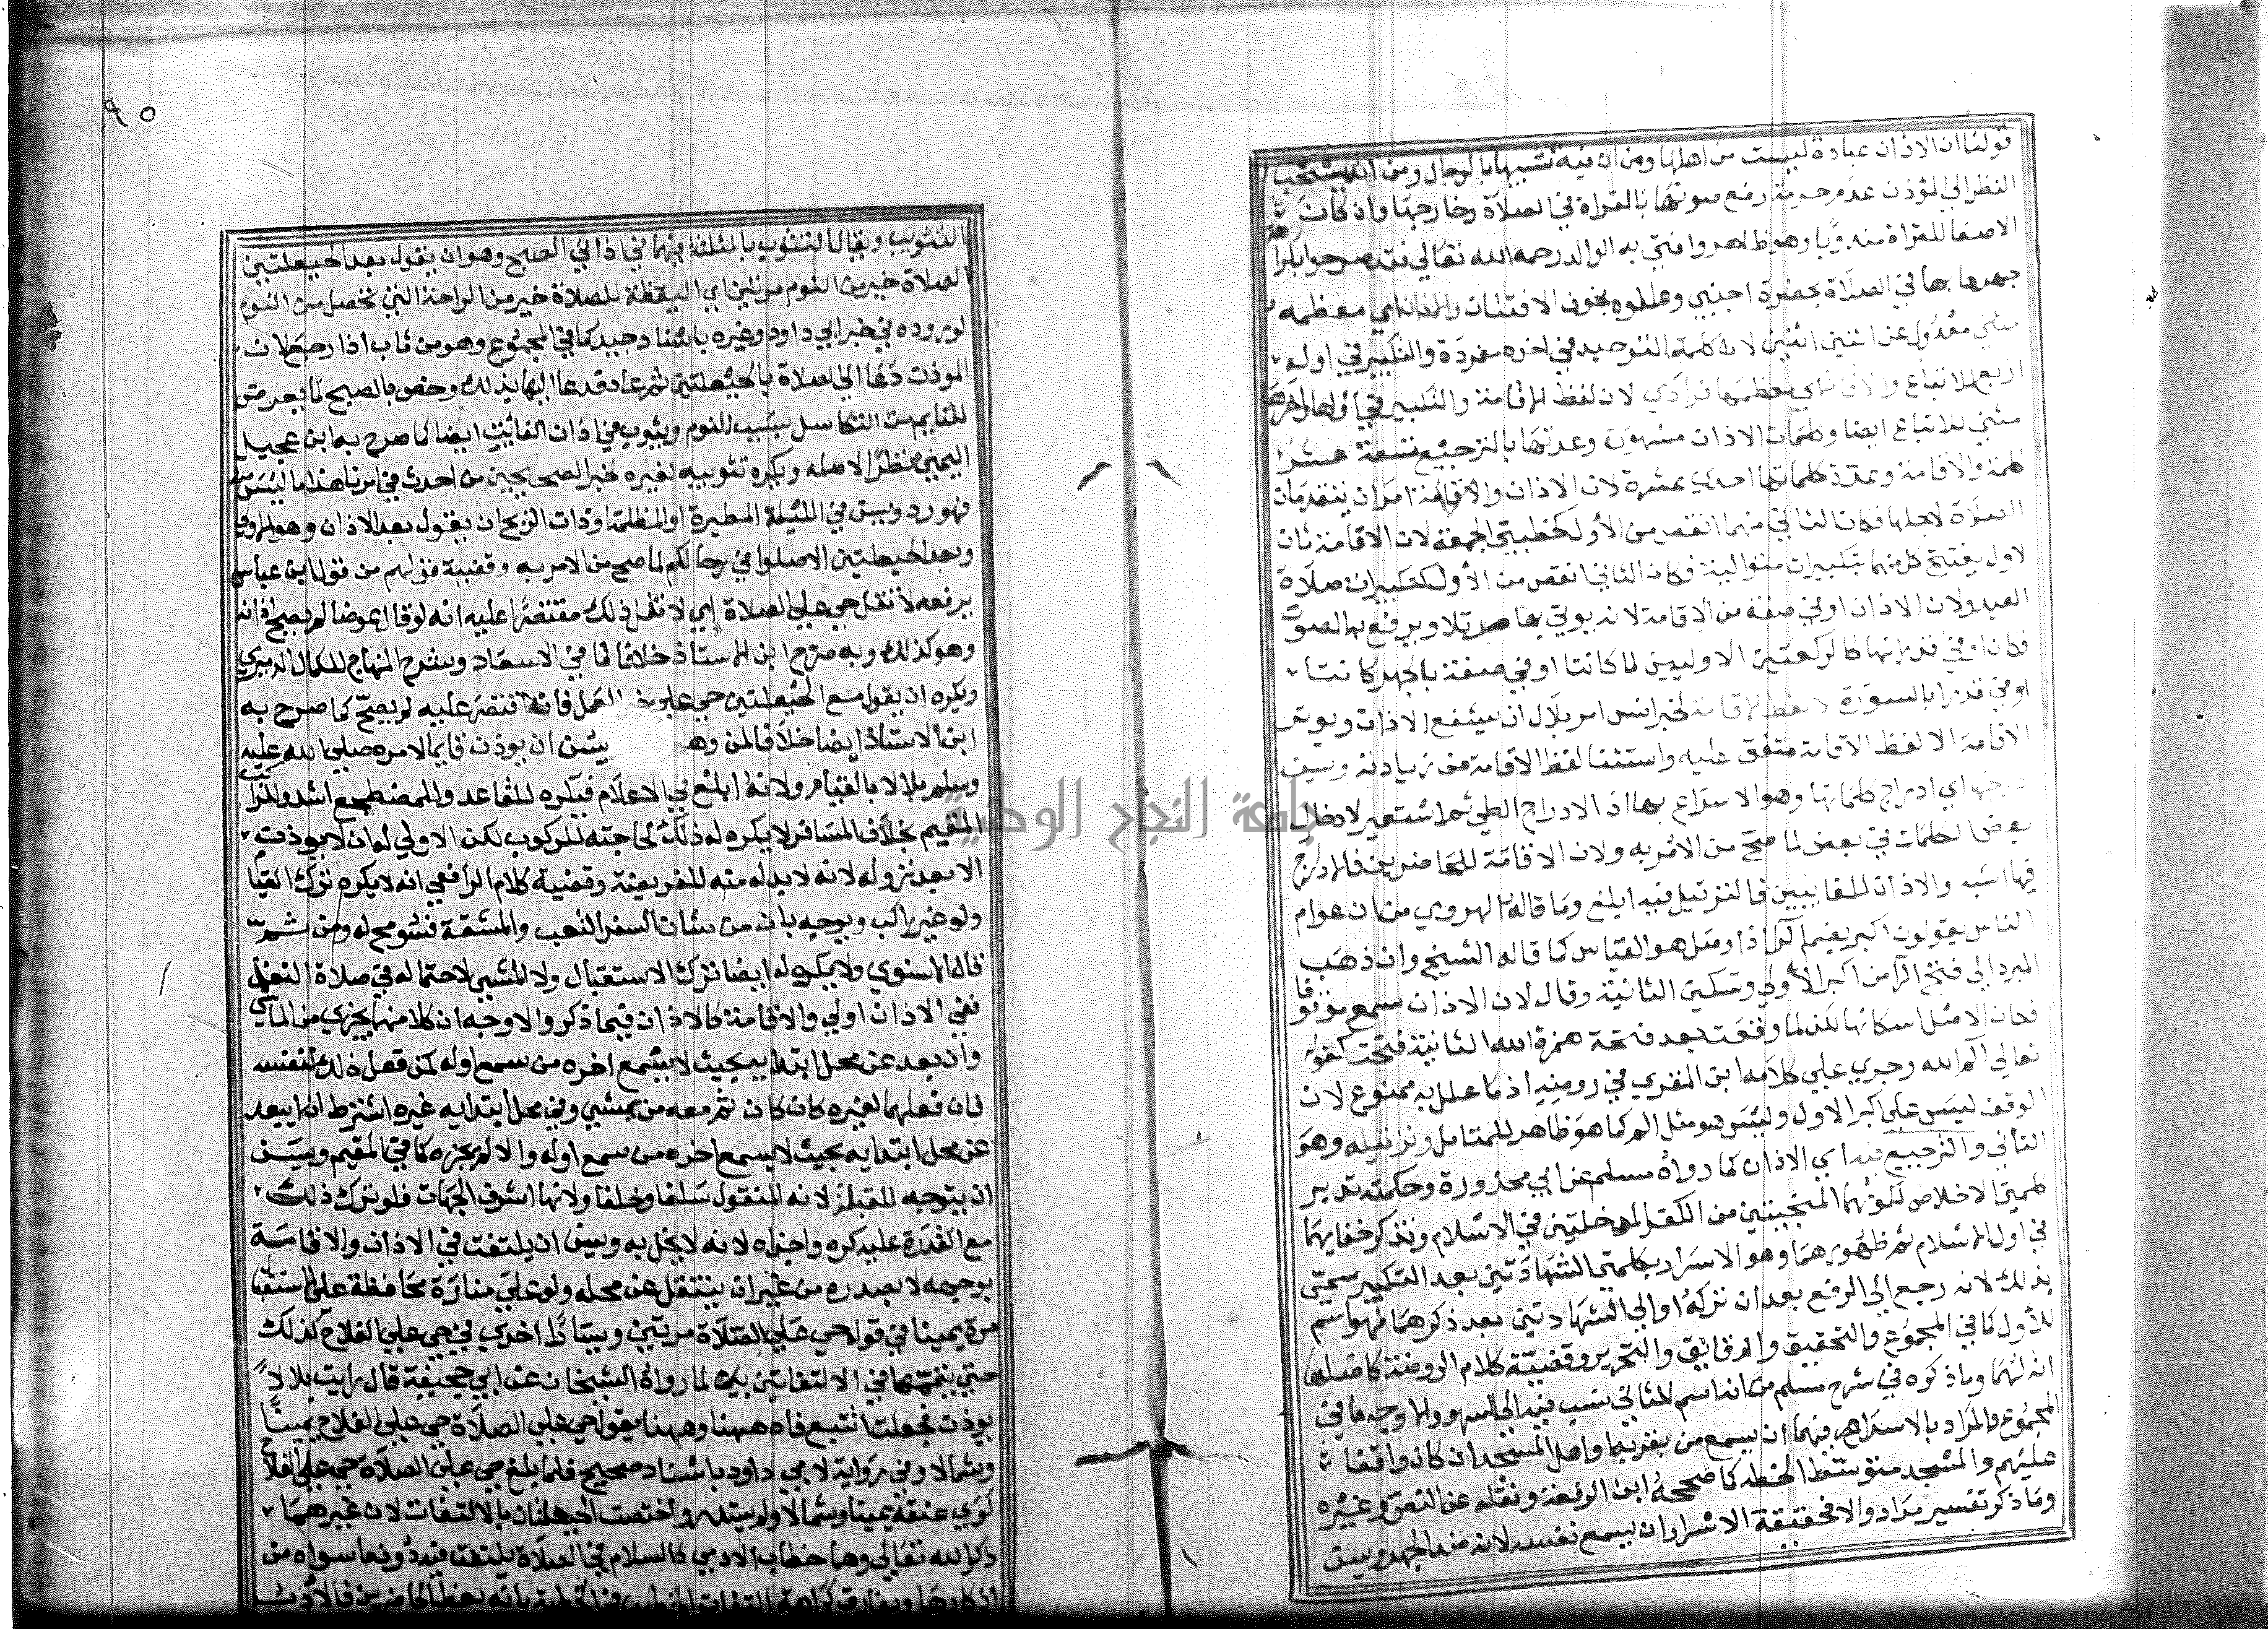 قولنا ان الاذان عبادة ليست من اهلها ومن ان فيه تشبيها بالرجال ومن انه يستحب
النظر الي المؤذن عدم حرمة رفع صوتها بالقراة في الصلاة وخارجها وان كان
الاصغا للقراة مندوبا وهو ظاهر وافتي به الوالد رحمه الله تعالي فقد صرحوا بكراهة
جهرها بها في الصلاة بحضرة اجنبي وعللوه بخوف الافتتان والاذان اي معظمه
مثني معدول عن اثنين اثنين لان كلمة التوحيد في اخره مفردة والتكبير في اوله
اربع للاتباع والاقامة اي معظمها فرادي لان لفظ الاقامة والتكبير في اولها واخرها
مثني للاتباع ايضا وكلمات الاذان مشهورة وعدتها بالترجيع تسعة عشر
كلمة والاقامة وعدة كلماتها احدي عشرة لان الاذان والاقامة امران يتقدمان
الصلاة لاجلها فكان الثاني منهما انقص من الأول كخطبتي الجمعة لان الاقامة ثان
لاول يفتتح كل منهما بتكبيرات متوالية فكان الثاني انقص من الأول كتكبيرات صلاة
العيد ولان الاذان اوفي صفة من الاقامة لانه يوتي بها مرتلا ويرفع به الصوت
فكان اوفي قدرا منها كالركعتين الاوليين لما كانتا اوفي صفة بالجهر كانتا
اوفي قدرا بالسورة لا لفظ الاقامة لخبر انس امر بلال ان يشفع الاذان ويوتر
الاقامة الا لفظ الاقامة متفق عليه واستثنا لفظ الاقامة من زيادته ويسن
درجها اي ادراج كلماتها وهو الاسراع بها اذ الادراج الطي ثم استعير لادخال
بعض الكلمات في بعض لما صح من الامر به ولان الاقامة للحاضرين فالادراج
فيها اشبه والاذان للغايبين فالترتيل فيه ابلغ وما قاله الهروي من ان عوام
الناس يقولون اكبر بضم الرا اذا وصل هو القياس كما قاله الشيخ وان ذهب
المبرد الي فتح الرا من اكبر الأولي وتسكين الثانية وقال لان الاذان سمع موقوفا
فكان الاصل اسكانها لكن لما وقعت بعد فتحة همزة الله الثانية فتحت كقوله
تعالي الم الله وجري علي كلامه ابن المقري في روضه اذ ما علل به ممنوع لان
الوقف ليس علي اكبر الاول وليس هو مثل الم كما هو ظاهر للمتامل وترتيله وهو
التاني والترجيع فيه اي الاذان كما رواه مسلم عن ابي محذورة وحكمته تدبر
كلمتي الاخلاص لكونهما المنجيتين من الكفر المدخلتين في الاسلام وتذكر خفايهما
في اول الاسلام ثم ظهورهما وهو الاسرار بكلمتي الشهادتين بعد التكبير سمي
بذلك لانه رجع الي الرفع بعد ان تركه او الي الشهادتين بعد ذكرهما فهو اسم
للأول كما في المجموع والتحقيق والدقائق والتحرير وقضية كلام الروضة كاصلها
انه لهما وما ذكره في شرح مسلم من انه اسم للثاني نسب فيه الي السهو والاوجه ما في
المجموع فالمراد بالاسرار بهما فيهما ان يسمع من بقربه او اهل المسجد ان كان واقفا
عليهم والمسجد متوسط الخطة كما صححه ابن الرفعة ونقله عن النص وغيره
وما ذكر تفسير مراد والا فحقيقة الاسرار ان يسمع نفسه لانه ضد الجهر ويسن
٩٥
التثويب ويقال التثوب بالمثلثة فيهما في اذاني الصبح وهو ان يقول بعد الحيعلتين
الصلاة خير من النوم مرتين اي اليقظة للصلاة خير من الراحة التي تحصل من النوم
لوروده في خبر ابي داود وغيره باسناد جيد كما في المجموع وهو من ثاب اذا رجع لان
الموذن دعا الي الصلاة بالحيعلتين ثم عاد فدعا اليها بذلك وخص بالصبح لما يعرض
للنايم من التكاسل بسبب النوم ويثوب في اذان الفائت ايضا كما صرح به ابن عجيل
اليمني نظرا لاصله ويكره تثويبه لغيره لخبر الصحيحين من احدث في امرنا هذا ما ليس منه
فهو رد ويسن في الليلة المطيرة او المظلمة او ذات الريح ان يقول بعد الاذان وهو الاولي
وبعد الحيعلتين الا صلوا في رحالكم لما صح من الامر به وقضية قولهم من قول ابن عباس
يرفعه لا تقل حي علي الصلاة اي لا تقل ذلك مقتصرا عليه انه لو قاله عوضا لم يصح اذانه
وهو كذلك وبه صرح ابن الاستاذ خلافا لما في الاسعاد وشرح المنهاج للكمال الدميري
ويكره ان يقول مع الحيعلتين حي علي خير العمل فانه اقتصر عليه لم يصح كما صرح به
ابن الاستاذ ايضا خلافا لمن وهم يسن ان يوذن قايما لامره صلي الله عليه
وسلم بلالا بالقيام ولانه ابلغ في الاعلام فيكره للقاعد وللمضطجع اشد والراكب
المقيم بخلاف المسافر لا يكره له ذلك لحاجته للركوب لكن الاولي له ان لا يوذن
الا بعد نزوله لانه لا بد له منه للفريضة وقضية كلام الرافعي انه لا يكره ترك القيام
ولو غير راكب ويوجه بان من شان السفر التعب والمشقة فسومح له ومن ثم
قاله الاسنوي ولا يكره له ايضا ترك الاستقبال ولا المشي لاحتماله في صلاة النفل
ففي الاذان اولي والاقامة كالاذان فيما ذكر والاوجه ان كلا منهما يجزي من الماشي
وان بعد عن محل ابتدايه بحيث لا يسمع اخره من سمع اوله لمن فعل ذلك لنفسه
فان فعلهما لغيره كان كان ثم معه من يمشي وفي محل ابتدايه غيره اشترط ان لا يبعد
عن محل ابتدايه بحيث لا يسمع اخره من سمع اوله والا لم يجزه كما في المقيم ويسن
ان يتوجه للقبلة لانه المنقول سلفا وخلفا ولانها اشرف الجهات فلو ترك ذلك
مع القدرة عليه كره واجزاه لانه لا يخل به ويسن ان يلتفت في الاذان والاقامة
بوجهه لا بصدره من غير ان ينتقل عن محله ولو علي منارة محافظة علي الاستقبال
مرة يمينا في قوله حي علي الصلاة مرتين ويسارا اخري في حي علي الفلاح كذلك
حتي يتمهما في الالتفاتين لما رواه الشيخان عن ابي جحيفة قال رايت بلالا
يوذن فجعلت اتتبع فاه ههنا وههنا يقول حي علي الصلاة حي علي الفلاح يمينا
وشمالا وفي رواية لابي داود باسناد صحيح فلما بلغ حي علي الصلاة حي علي الفلاح
لوي عنقه يمينا وشمالا ولم يستدر واختصت الحيعلتان بالالتفات لان غيرهما
ذكر الله تعالي وهما خطاب الادمي كالسلام في الصلاة يلتفت فيه دون ما سواه من
اذكارها ويفارق كراهة التفات الخطيب في الخطبة بانه يعظ الحاضرين فالادب
جامعة النجاح الوطنية